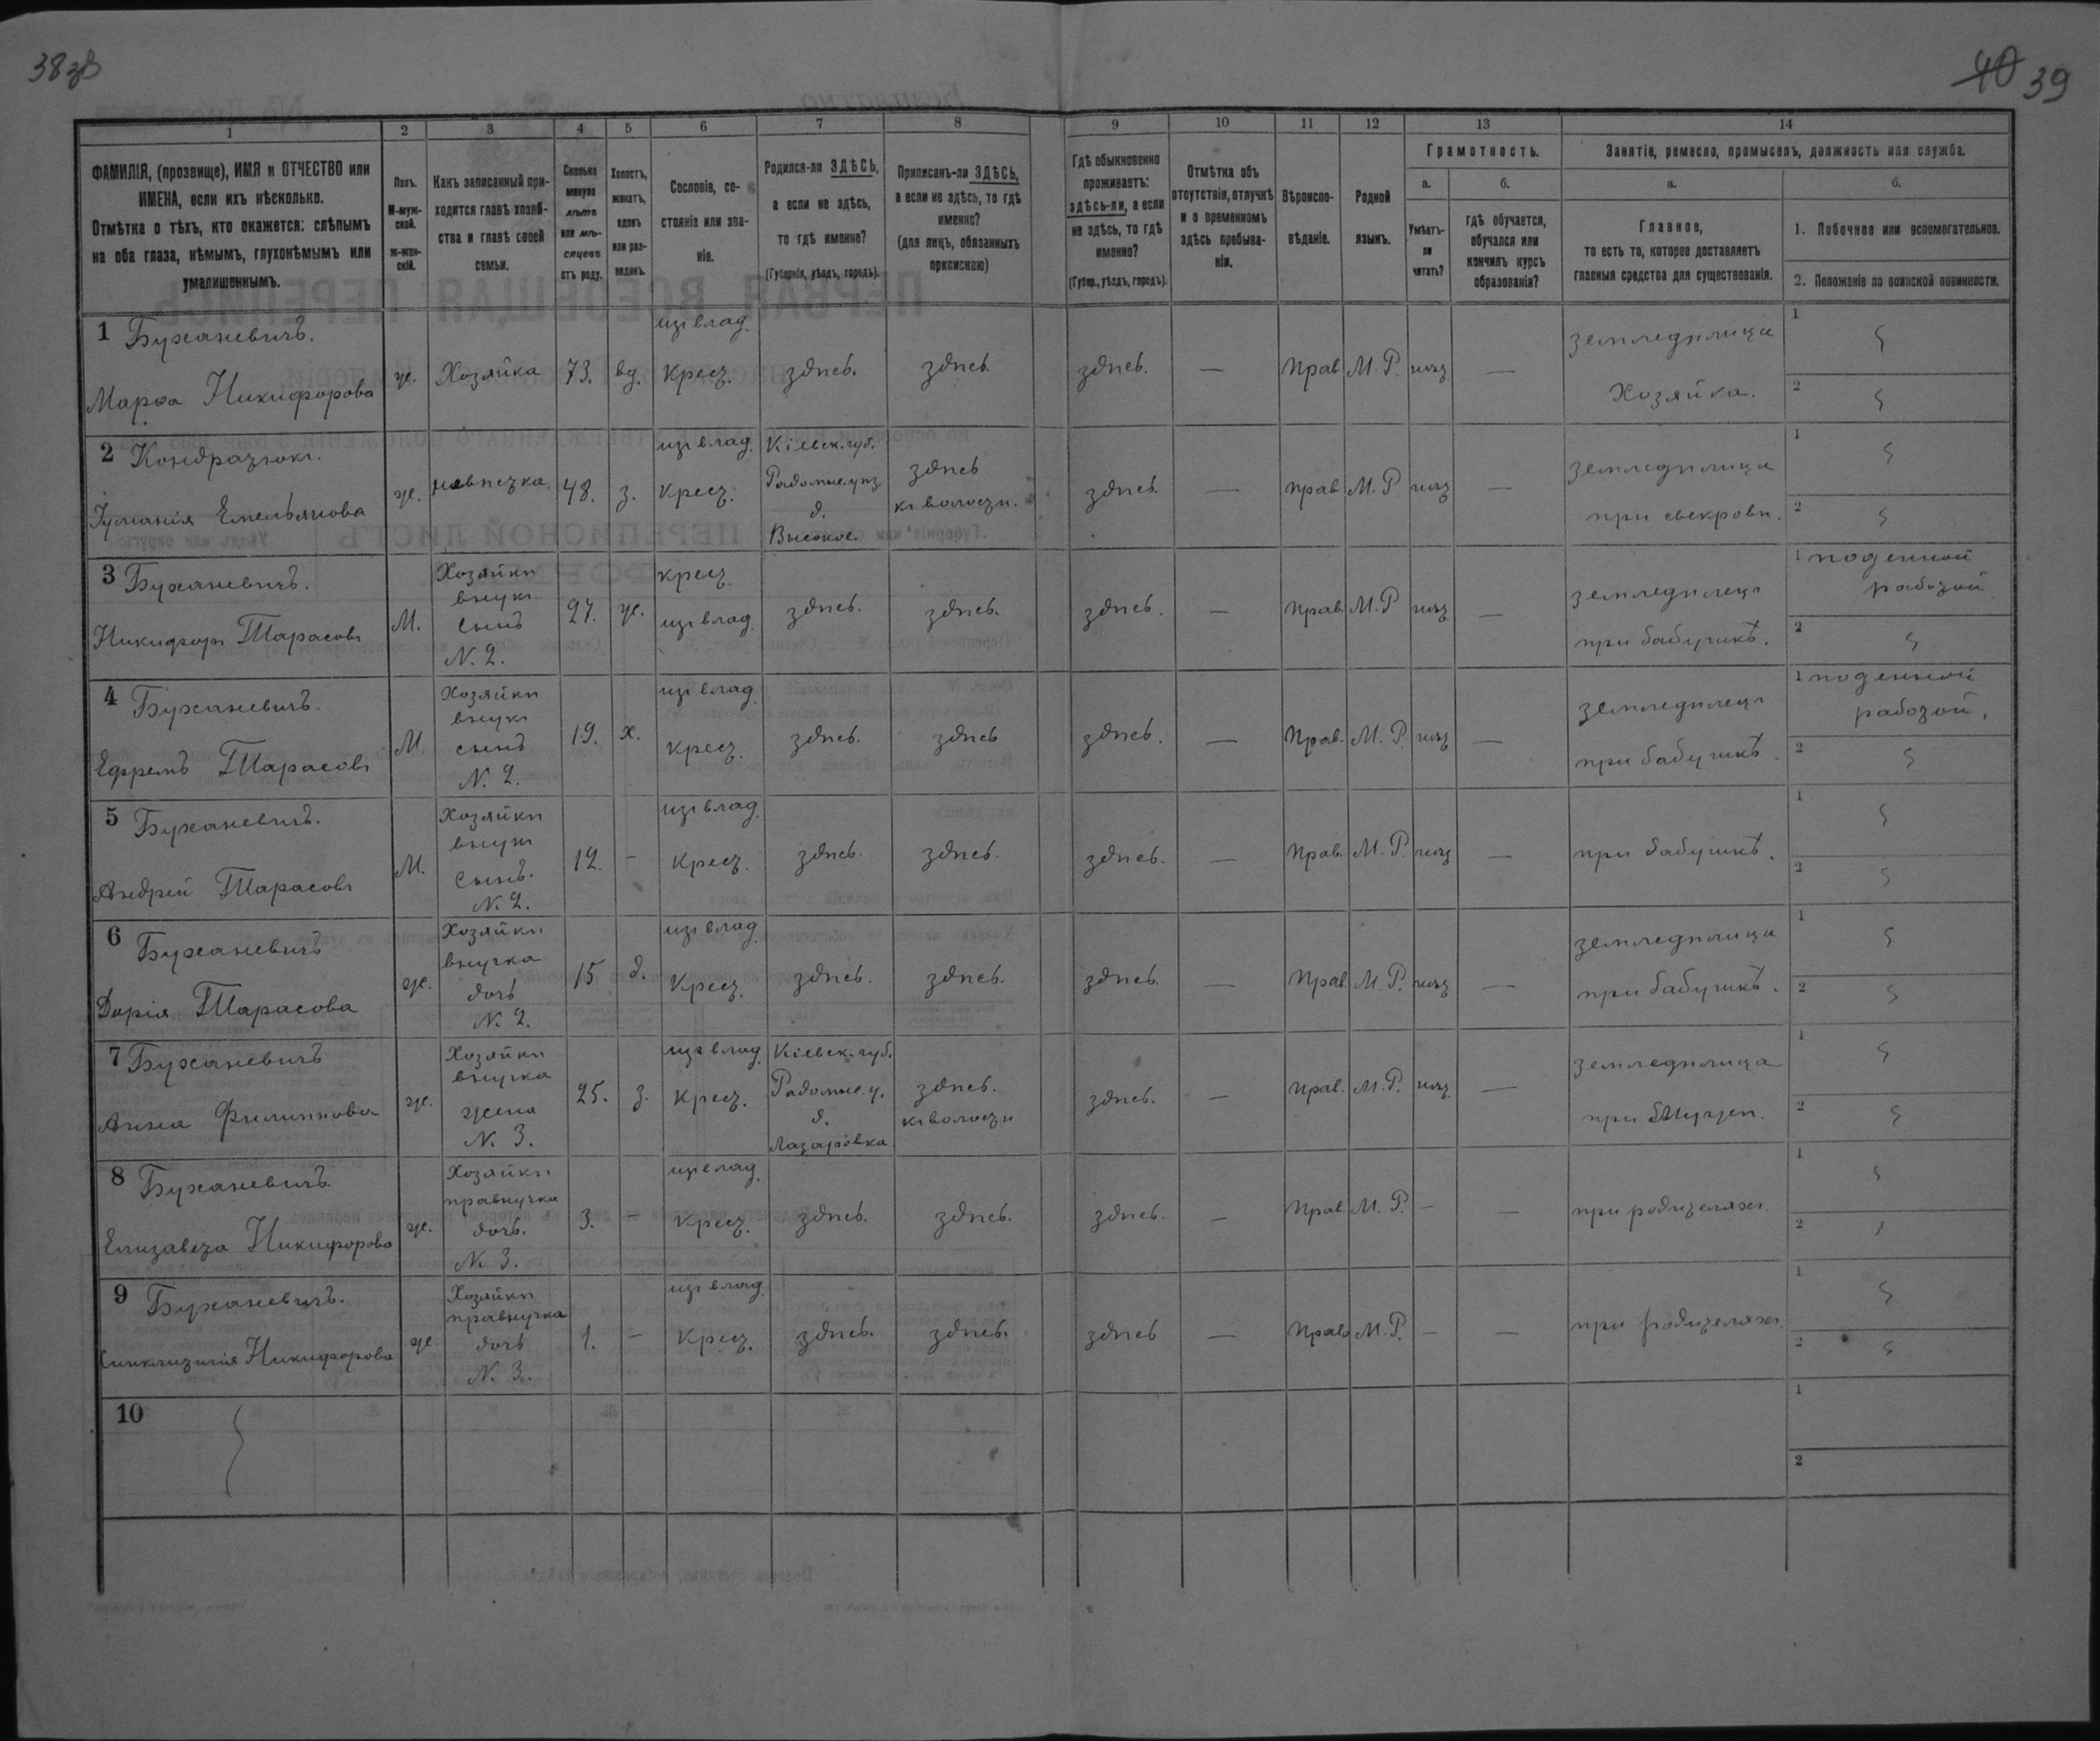 38 зв
40 39
1 2 3 4 5 6 7 8 9 10 11 12 13 14
ФАМИЛІЯ, (прозвище), ИМЯ и ОТЧЕСТВО или ИМЕНА, если ихъ нѣсколько.
Отмѣтка о тѣхъ, кто окажется: слѣпымъ на оба глаза, нѣмымъ, глухонѣмымъ или умалишеннымъ.
Полъ.
М-мужской.
Ж-женскій.
Какъ записанный приходится главѣ хозяйства и главѣ своей семьи.
Сколько минуло лѣтъ или мѣсяцевъ отъ роду.
Холостъ, женатъ, вдовъ или разведенъ.
Сословіе, состояніе или званіе.
Родился-ли ЗДѢСЬ, а если не здѣсь, то гдѣ именно?
(Губернія, уѣздъ, городъ).
Приписанъ-ли ЗДѢСЬ, а если не здѣсь, то гдѣ именно?
(для лицъ, обязанныхъ припискою)
Гдѣ обыкновенно проживаетъ: здѣсь-ли, а если не здѣсь, то гдѣ именно?
(Губер., уѣздъ, городъ).
Отмѣтка объ отсутствіи, отлучкѣ и о временномъ здѣсь пребываніи.
Вѣроисповѣданіе.
Родной языкъ.
Грамотность.
а.
Умѣетъ-ли читать?
б.
гдѣ обучается, обучался или кончилъ курсъ образованія?
Занятіе, ремесло, промыселъ, должность или служба.
а.
Главное,
то есть то, которое доставляетъ главныя средства для существованія.
б.
1. Побочное или вспомогательное.
2. Положеніе по воинской повинности.
1 Буханевичъ.
Марѳа Никифорова
же. Хозяйка 73. вд. изъ влад. крест. здѣсь. здѣсь. здѣсь. — Прав М. Р. нѣт — земледѣлица
Хозяйка.
1
2
2 Кондратюкъ.
Емельянова
же. невѣстка. 48. з. изъ влад. крест. Кіевск. губ. Радомыс. уѣз. д. Высокое. здѣсь къ волости. здѣсь. — прав М. Р. нѣт — земледѣлица
при свекрови.
1
2
3 Буханевичъ.
Никифоръ Тарасовъ
М. Хозяйки внукъ сынъ N. 2. 27. же. крест. изъ влад. здѣсь. здѣсь. здѣсь. — Прав М. Р нѣт — земледѣлецъ
при бабушкѣ.
1 поденной работой
2
4 Буханевичъ.
Ефремъ Тарасовъ
М. Хозяйки внукъ сынъ N. 2. 19. х. изъ влад. крест. здѣсь. здѣсь здѣсь. — Прав. М. Р. нѣт — земледѣлецъ
при бабушкѣ.
1 поденной работой.
2
5 Буханевичъ.
Андрей Тарасовъ
М. Хозяйки внукъ сынъ. N. 2. 12. — изъ влад. крест. здѣсь. здѣсь. здѣсь. — Прав. М. Р. нѣт — при бабушкѣ.
1
2
6 Буханевичъ
Дарія Тарасова
же. Хозяйки внучка дочь N. 2. 15 д. изъ влад. крест. здѣсь. здѣсь. здѣсь. — Прав М. Р. нѣт — земледѣлица
при бабушкѣ.
1
2
7 Буханевичъ
Анна Филиппова
же. Хозяйки внучка жена N. 3. 25. з. изъ влад. крест. Кіевск. губ. Радомыс. у. д. Лазаровка здѣсь. къ волости здѣсь. — Прав. М. Р. нѣт. — земледѣлица
при
1
2
8 Буханевичъ
Елизавета Никифорова
же. Хозяйки правнучка дочь. N. 3. 3. — изъ влад. крест. здѣсь. здѣсь. здѣсь. — Прав. М. Р. — — при родителяхъ.
1
2
9 Буханевичъ.
Синклитикія Никифорова
же. Хозяйки правнучка дочь N. 3. 1. — изъ влад. Крест. здѣсь. здѣсь. здѣсь — Прав М. Р. — — при родителяхъ
1
2
10
1
2